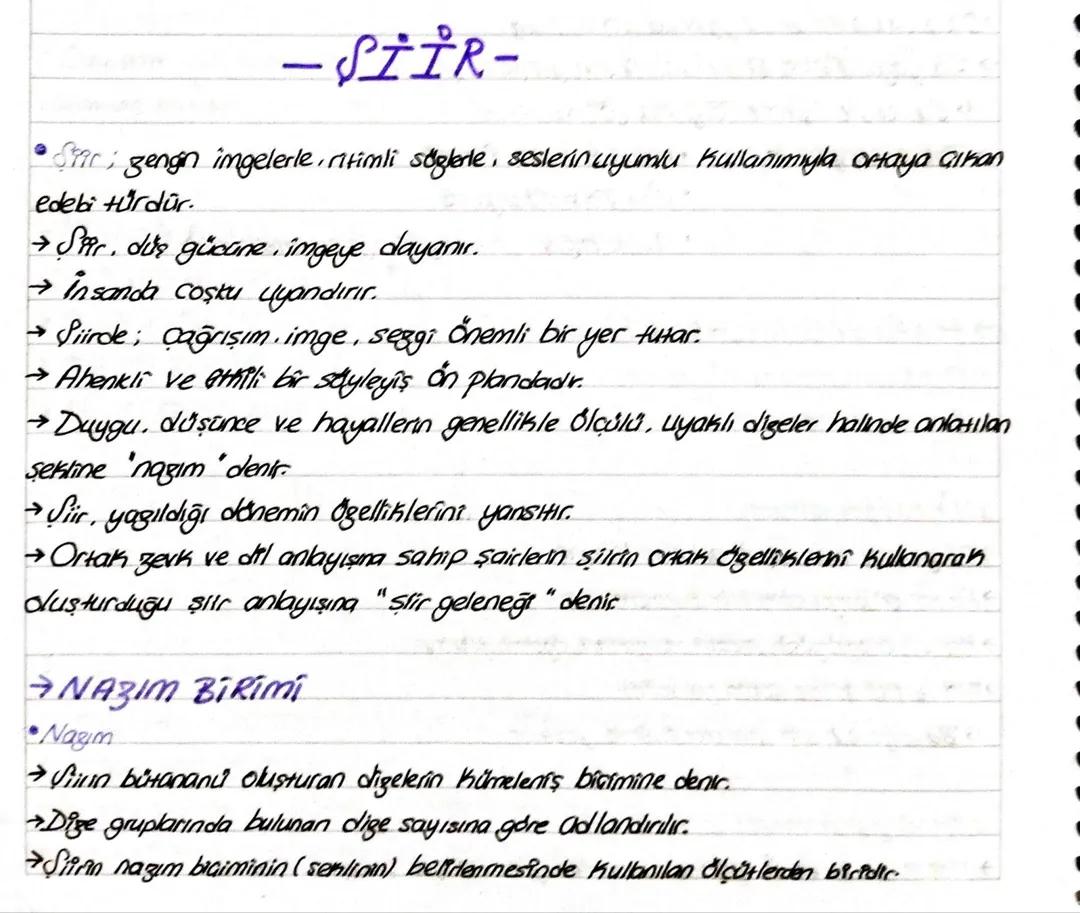 - ŞİİR -
• Şiir; zengin imgelerle, ritimli sözlerle, seslerin uyumlu kullanımıyla ortaya çıkan
edebi türdür.
→ Şiir, düş gücüne, imgeye dayanır.
→ İnsanda coşku uyandırır.
→ Şiirde; çağrışım, imge, sezgi önemli bir yer tutar.
→ Ahenkli ve etkili bir söyleyiş ön plandadır.
→ Duygu, düşünce ve hayallerin genellikle ölçülü, uyaklı dizeler halinde anlatılan
şekline "nazım" denir.
→ Şiir, yazıldığı dönemin özelliklerini yansıtır.
→ Ortak zevk ve dil anlayışına sahip şairlerin şiirin ortak özelliklerini kullanarak
oluşturduğu şiir anlayışına "şiir geleneği" denir
→ NAZIM BİRİMİ
• Nazım
→ Şiirin bütününü oluşturan dizelerin kümeleniş biçimine denir.
→ Dize gruplarında bulunan dize sayısına göre adlandırılır.
→ Şiirin nazım biçiminin (şeklinin) belirlenmesinde kullanılan ölçütlerden biridir.